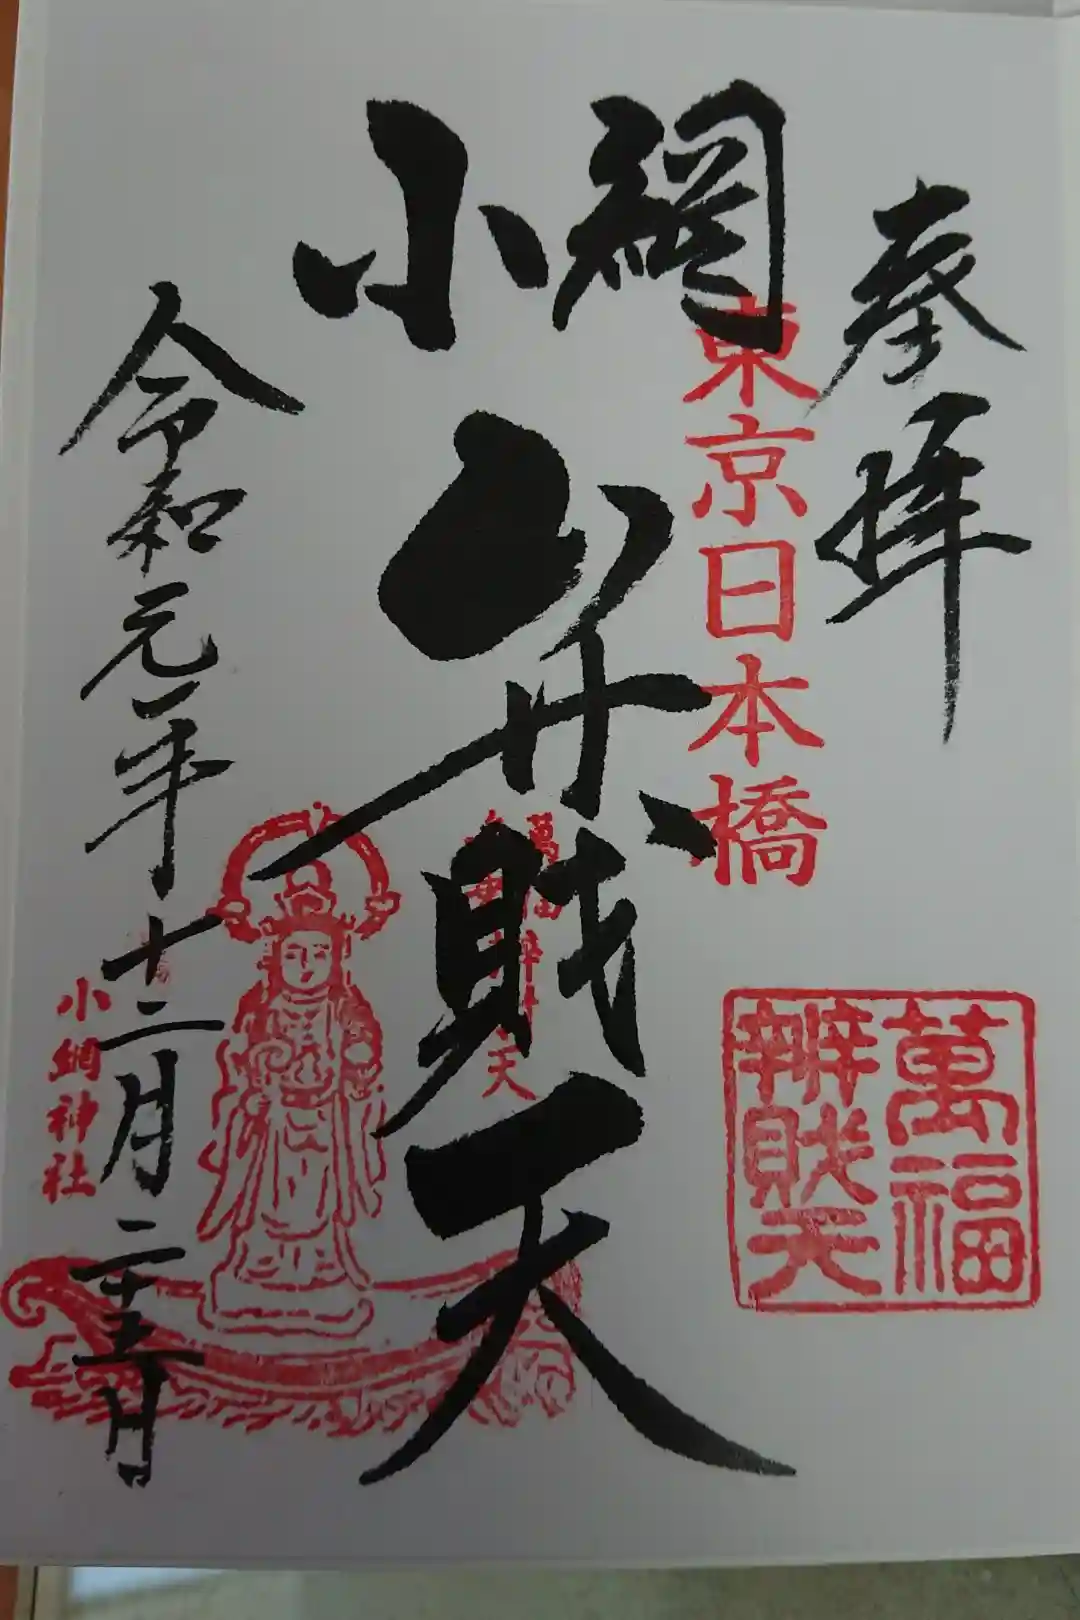 奉拝
東京日本橋
萬福
辨財天
小網
弁財天
萬福
天
令和元年十二月二十五日
小網神社